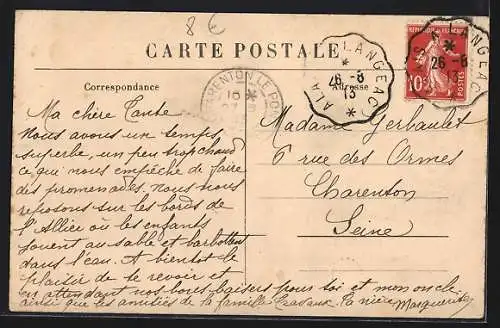 8€
CARTE POSTALE
Correspondance
Adresse
Ma chère Tante
Nous avons un temps
superbe, un peu trop chaud
ce qui nous empêche de faire
des promenades. Nous nous
reposons sur les bords de
l'Allier où les enfants
jouent au sable et barbottent
dans l'eau. A bientôt le
plaisir de te revoir et
en attendant nos bons baisers pour toi et mon oncle
ainsi que les amitiés de la famille Ta nièce Marguerite
CHARENTON LE PONT
ALA LANGEAC
26 - 8
13
REPUBLIQUE FRANÇAISE
10
POSTES
LANGEAC
26 - 8
13
Madame Gerbault
6 rue des Ormes
Charenton
Seine